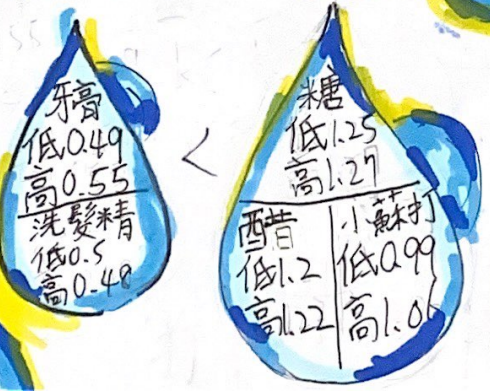 牙膏
低0.49
高0.55
洗髮精
低0.5
高0.48
<
糖
低1.25
高1.27
醋
低1.2
高1.22
小蘇打
低0.99
高1.06